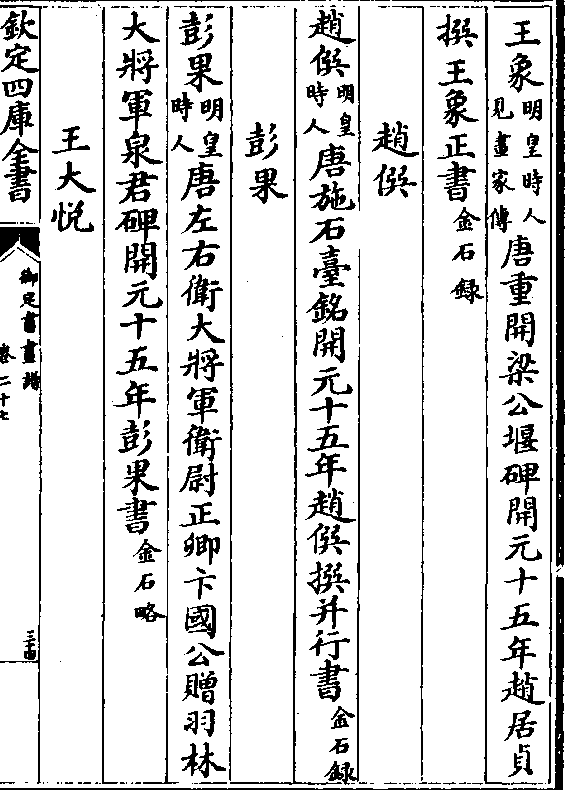 王象明皇時人見畫家傳唐重開梁公堰碑開元十五年趙居貞
撰王象正書金石録
趙儗
趙儗明皇時人唐施石臺銘開元十五年趙儗撰并行書金石録
彭果
彭果明皇時人唐左右衛大將軍衛尉正卿卞國公贈羽林
大將軍泉君碑開元十五年彭果書金石略
王大悦
欽定四庫全書
御定書畫譜
卷二十七